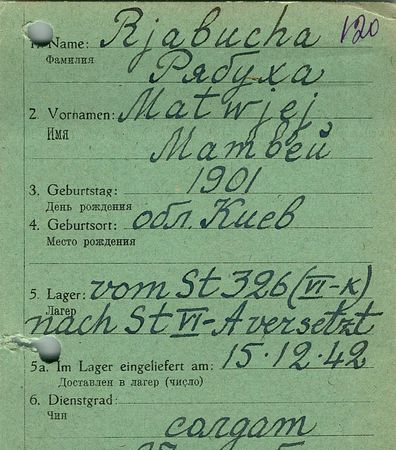 1. Name: Rjabucha 120
Фамилия Рябуха
2. Vornamen: Matwjej
Имя Матвей
3. Geburtstag: 1901
День рождения
4. Geburtsort: обл. Киев
Место рождения
5. Lager: vom St 326 (VI-K)
Лагер
nach St VI-A versetzt
5a. Im Lager eingeliefert am: 15.12.42
Доставлен в лагер (число)
6. Dienstgrad:
Чин
солдат